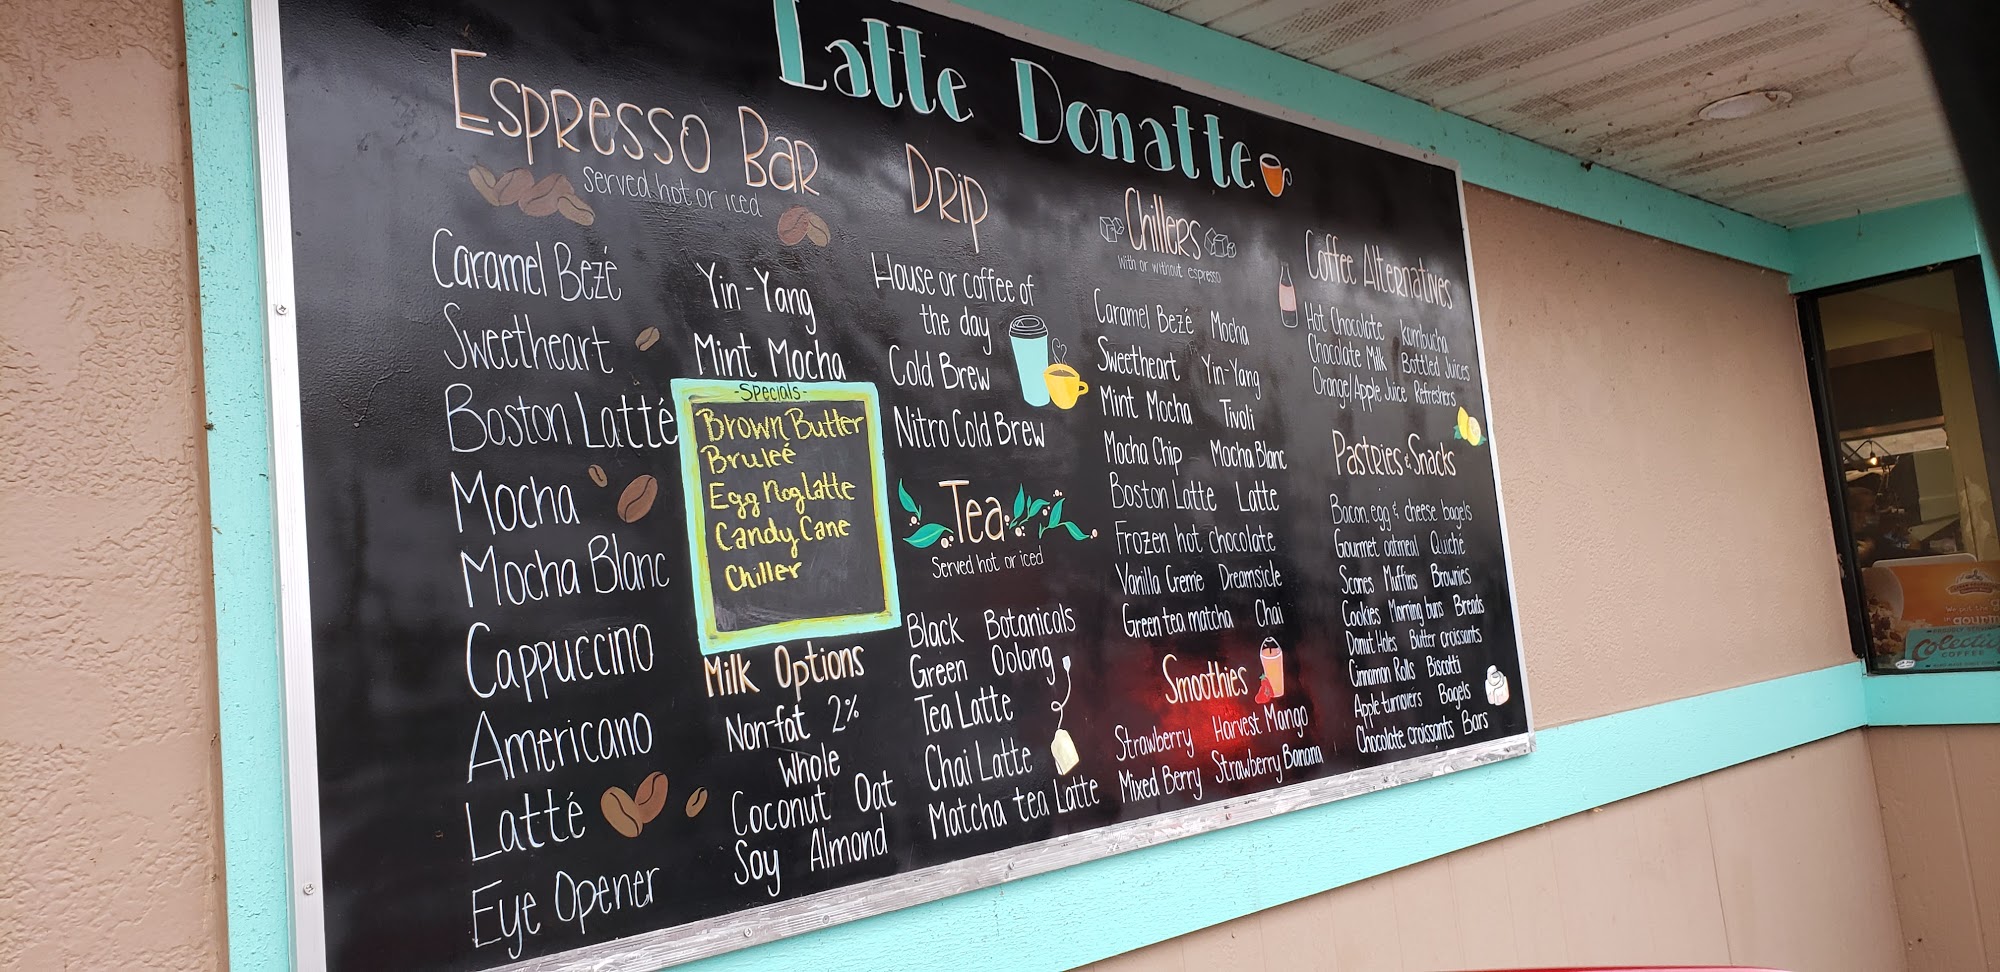 Latte Donatte
Espresso Bar
Served hot or iced
Caramel Bezé
Sweetheart
Boston Latté
Mocha
Mocha Blanc
Cappuccino
Americano
Latté
Eye Opener
Yin-Yang
Mint Mocha
-Specials-
Brown Butter
Bruleé
Egg Nog Latte
Candy Cane
Chiller
Milk Options
Non-fat 2%
Whole
Coconut Oat
Soy Almond
Drip
House or coffee of
the day
Cold Brew
Nitro Cold Brew
Tea
Served hot or iced
Black Botanicals
Green Oolong
Tea Latte
Chai Latte
Matcha tea Latte
Chillers
With or without espresso
Caramel Bezé Mocha
Sweetheart Yin-Yang
Mint Mocha Tivoli
Mocha Chip Mocha Blanc
Boston Latte Latte
Frozen hot chocolate
Vanilla Creme Dreamsicle
Green tea matcha Chai
Smoothies
Strawberry Harvest Mango
Mixed Berry Strawberry Banana
Coffee Alternatives
Hot Chocolate Kumbucha
Chocolate Milk Bottled Juices
Orange/Apple Juice Refreshers
Pastries & Snacks
Bacon, egg & cheese bagels
Gourmet oatmeal Quiché
Scones Muffins Brownies
Cookies Morning buns Breads
Donut Holes Butter croissants
Cinnamon Rolls Biscotti
Apple turnovers Bagels
Chocolate croissants Bars
gourm
COFFEE